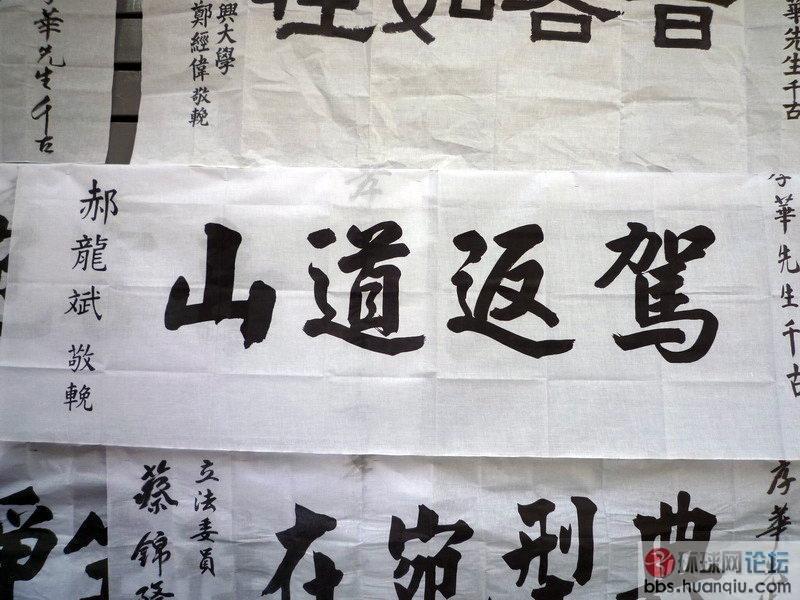 華先生千古
音容如在
興大學
鄭經偉敬輓
華先生千古
華先生千古
駕返道山
郝龍斌 敬輓
序華
典型宛在
立法委員
蔡錦隆
环球网论坛
bbs.huanqiu.com